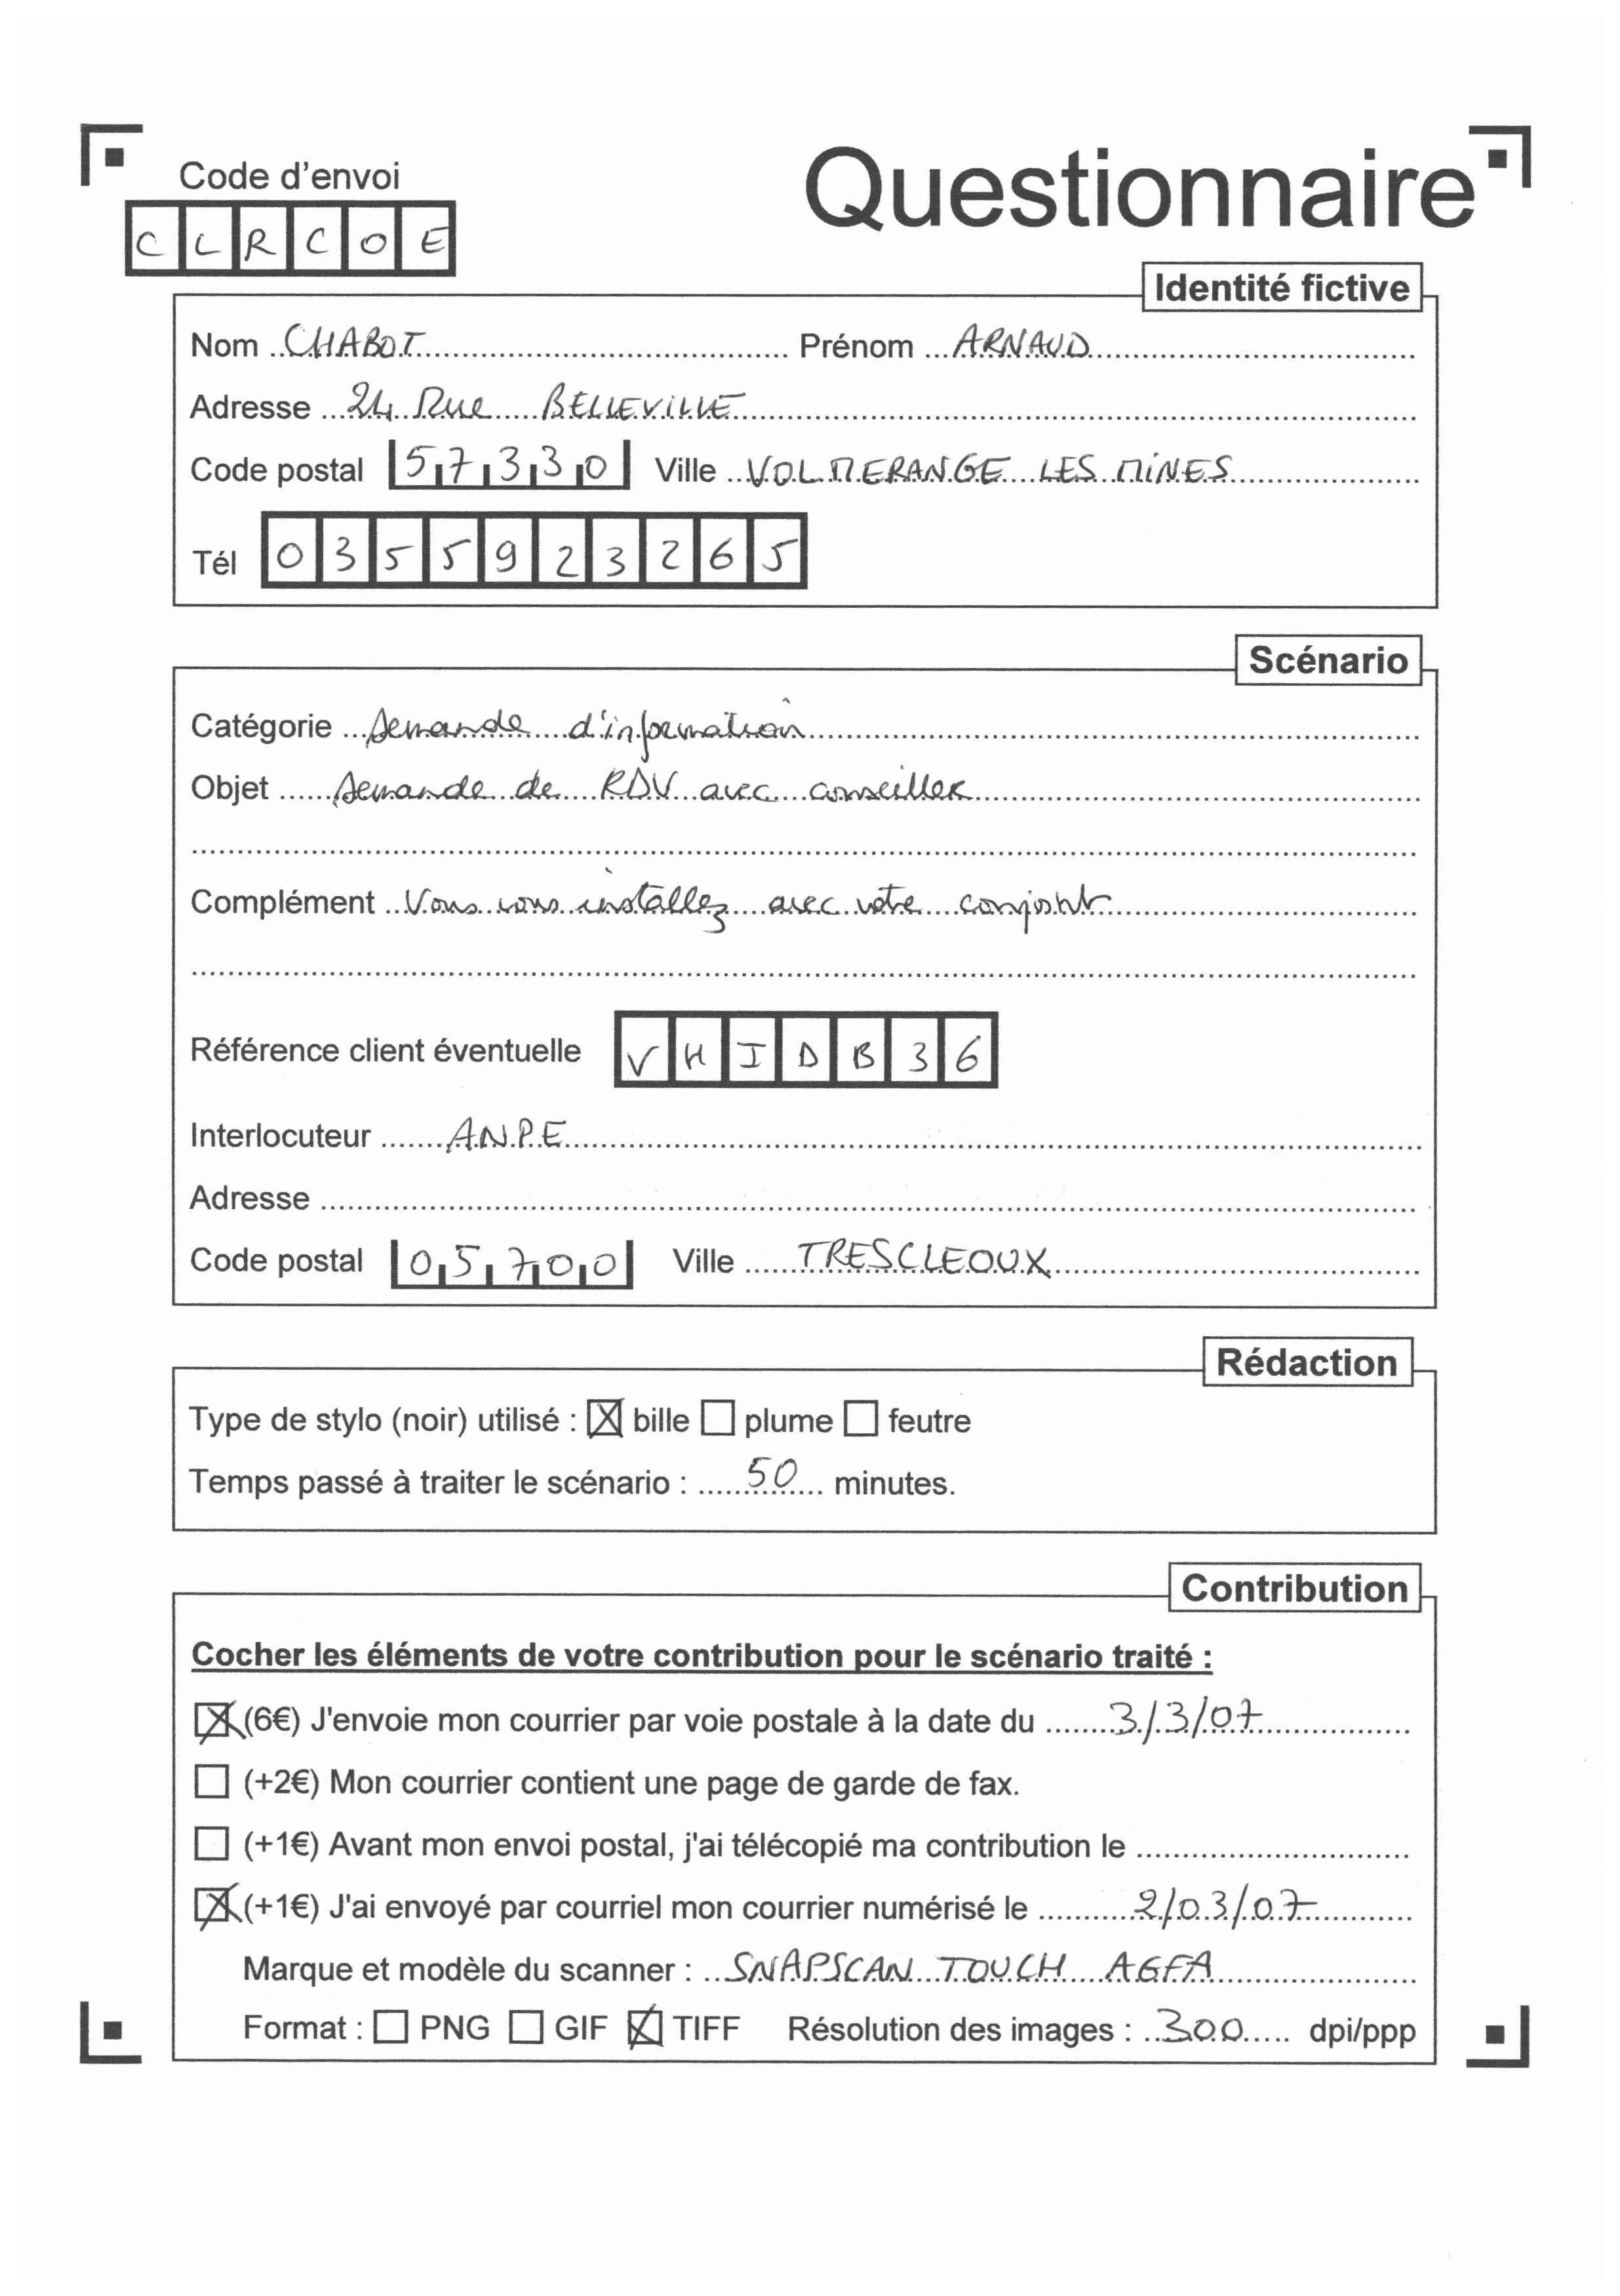 Code d'envoi
Questionnaire
CLRCOE
Identité fictive
Nom CHABOT Prénom ARNAUD
Adresse 24 Rue BELLEVILLE
Code postal 57330 Ville VOLMERANGE LES MINES
Tél 0355923265
Scénario
Catégorie Demande d'information
Objet Demande de RDV avec conseiller
Complément Vous vous installez avec votre conjoint
Référence client éventuelle VHIDB36
Interlocuteur ANPE
Adresse
Code postal 05700 Ville TRESCLEOUX
Rédaction
Type de stylo (noir) utilisé : ☒ bille ☐ plume ☐ feutre
Temps passé à traiter le scénario : 50 minutes.
Contribution
Cocher les éléments de votre contribution pour le scénario traité :
☒ (6€) J'envoie mon courrier par voie postale à la date du 3/3/07
☐ (+2€) Mon courrier contient une page de garde de fax.
☐ (+1€) Avant mon envoi postal, j'ai télécopié ma contribution le
☒ (+1€) J'ai envoyé par courriel mon courrier numérisé le 2/03/07
Marque et modèle du scanner : SNAPSCAN TOUCH AGFA
Format : ☐ PNG ☐ GIF ☒ TIFF Résolution des images : 300 dpi/ppp